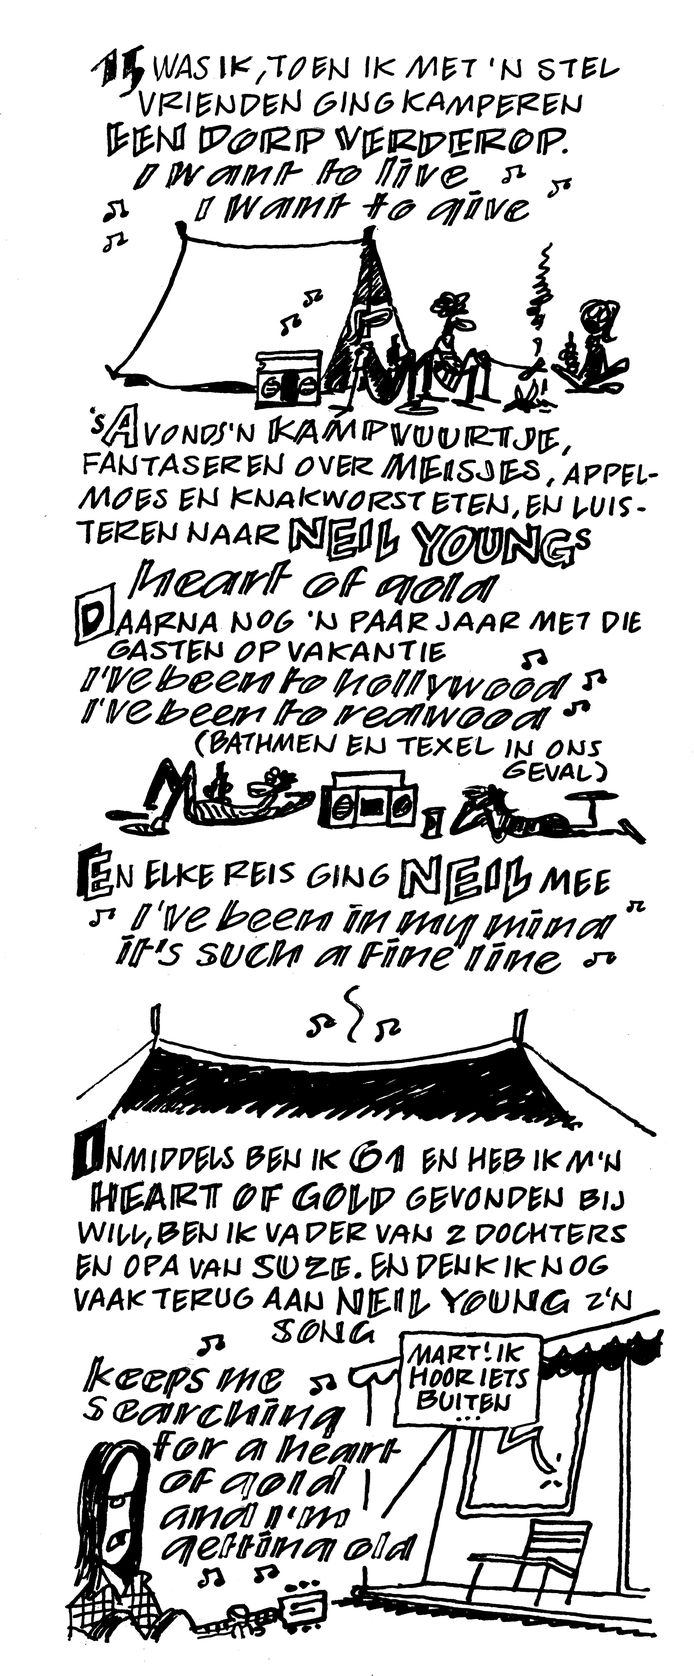 15 WAS IK, TOEN IK MET 'N STEL
VRIENDEN GING KAMPEREN
EEN DORP VERDEROP.
I want to live
I want to give
'S AVONDS 'N KAMPVUURTJE,
FANTASEREN OVER MEISJES, APPEL-
MOES EN KNAKWORST ETEN, EN LUIS-
TEREN NAAR NEIL YOUNGS
heart of gold
DAARNA NOG 'N PAAR JAAR MET DIE
GASTEN OP VAKANTIE
I've been to hollywood
I've been to redwood
(BATHMEN EN TEXEL IN ONS
GEVAL)
EN ELKE REIS GING NEIL MEE
I've been in my mind
it's such a fine line
INMIDDELS BEN IK 61 EN HEB IK M'N
HEART OF GOLD GEVONDEN BIJ
WILL, BEN IK VADER VAN 2 DOCHTERS
EN OPA VAN SUZE. EN DENK IK NOG
VAAK TERUG AAN NEIL YOUNG Z'N
SONG
keeps me
searching
for a heart
of gold
and I'm
getting old
MART! IK
HOOR IETS
BUITEN
...